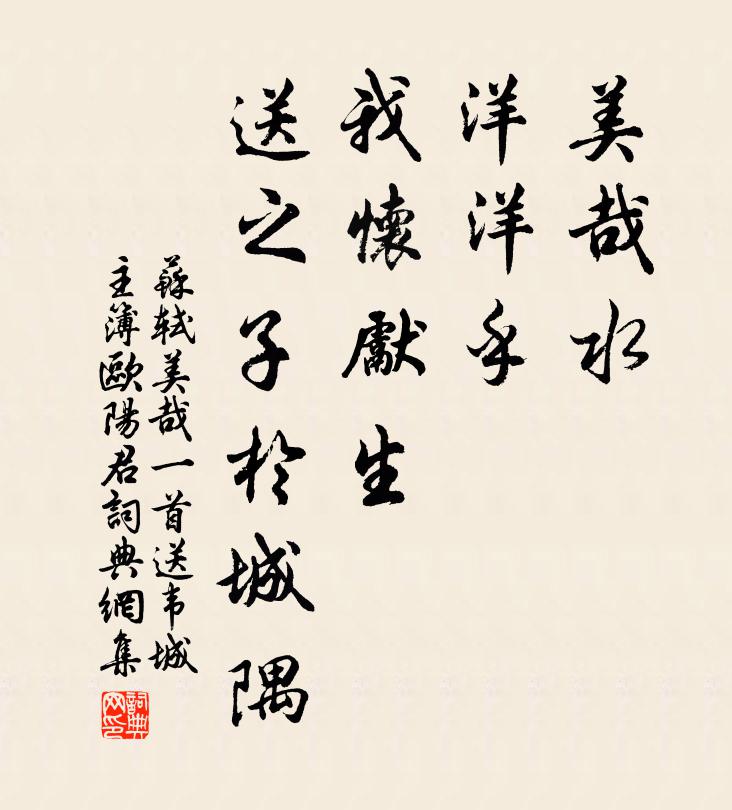 美哉水
洋洋乎
我懷獻生
送之子於城隅
蘇軾美哉一首送韦城
主簿歐陽君詞典網集
詞典
网印